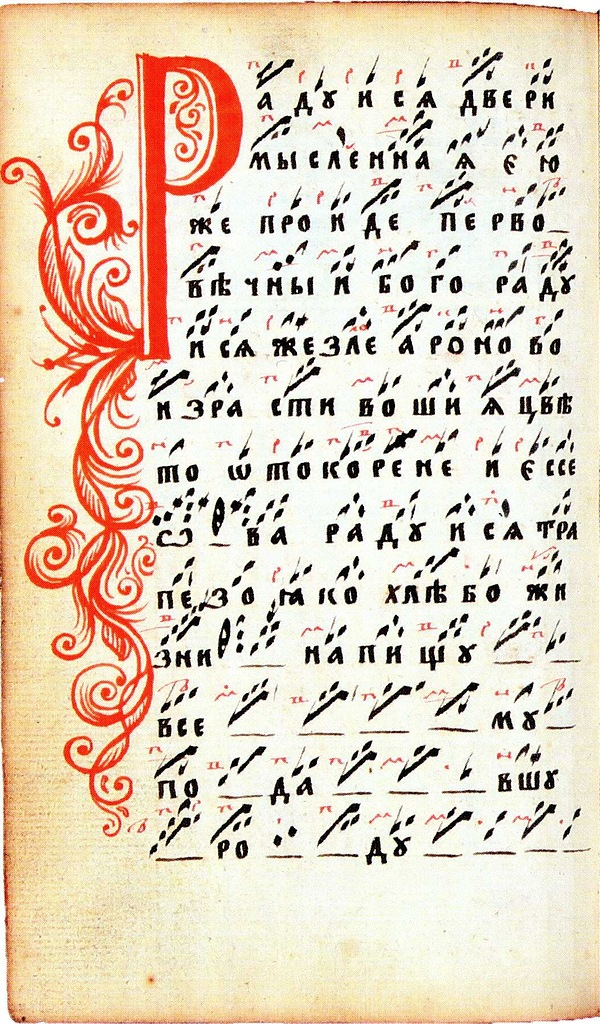 Радꙋисѧ двери
мысленнаѧ єю
же проиде перво
вѣчныи бого радꙋ
исѧ жезле ароно во
израстивошиѧ цвѣ
то ѡтокорене иєссе
ѡва радꙋисѧ тра
пезо ꙗко хлѣбо жи
зни напищꙋ
все мꙋ
пода вшꙋ
родꙋ